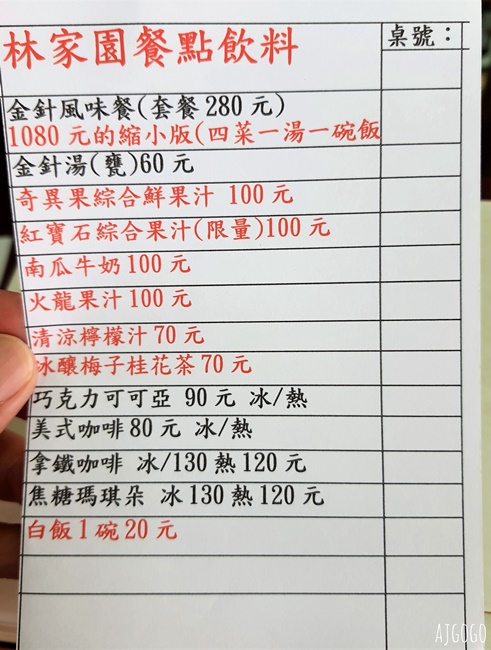 林家園餐點飲料 桌號：
金針風味餐(套餐 280 元)
1080 元的縮小版(四菜一湯一碗飯
金針湯(甕)60 元
奇異果綜合鮮果汁 100 元
紅寶石綜合果汁(限量)100 元
南瓜牛奶 100 元
火龍果汁 100 元
清涼檸檬汁 70 元
冰釀梅子桂花茶 70 元
巧克力可可亞 90 元 冰/熱
美式咖啡 80 元 冰/熱
拿鐵咖啡 冰/130 熱 120 元
焦糖瑪琪朵 冰 130 熱 120 元
白飯 1 碗 20 元
AJGOGO